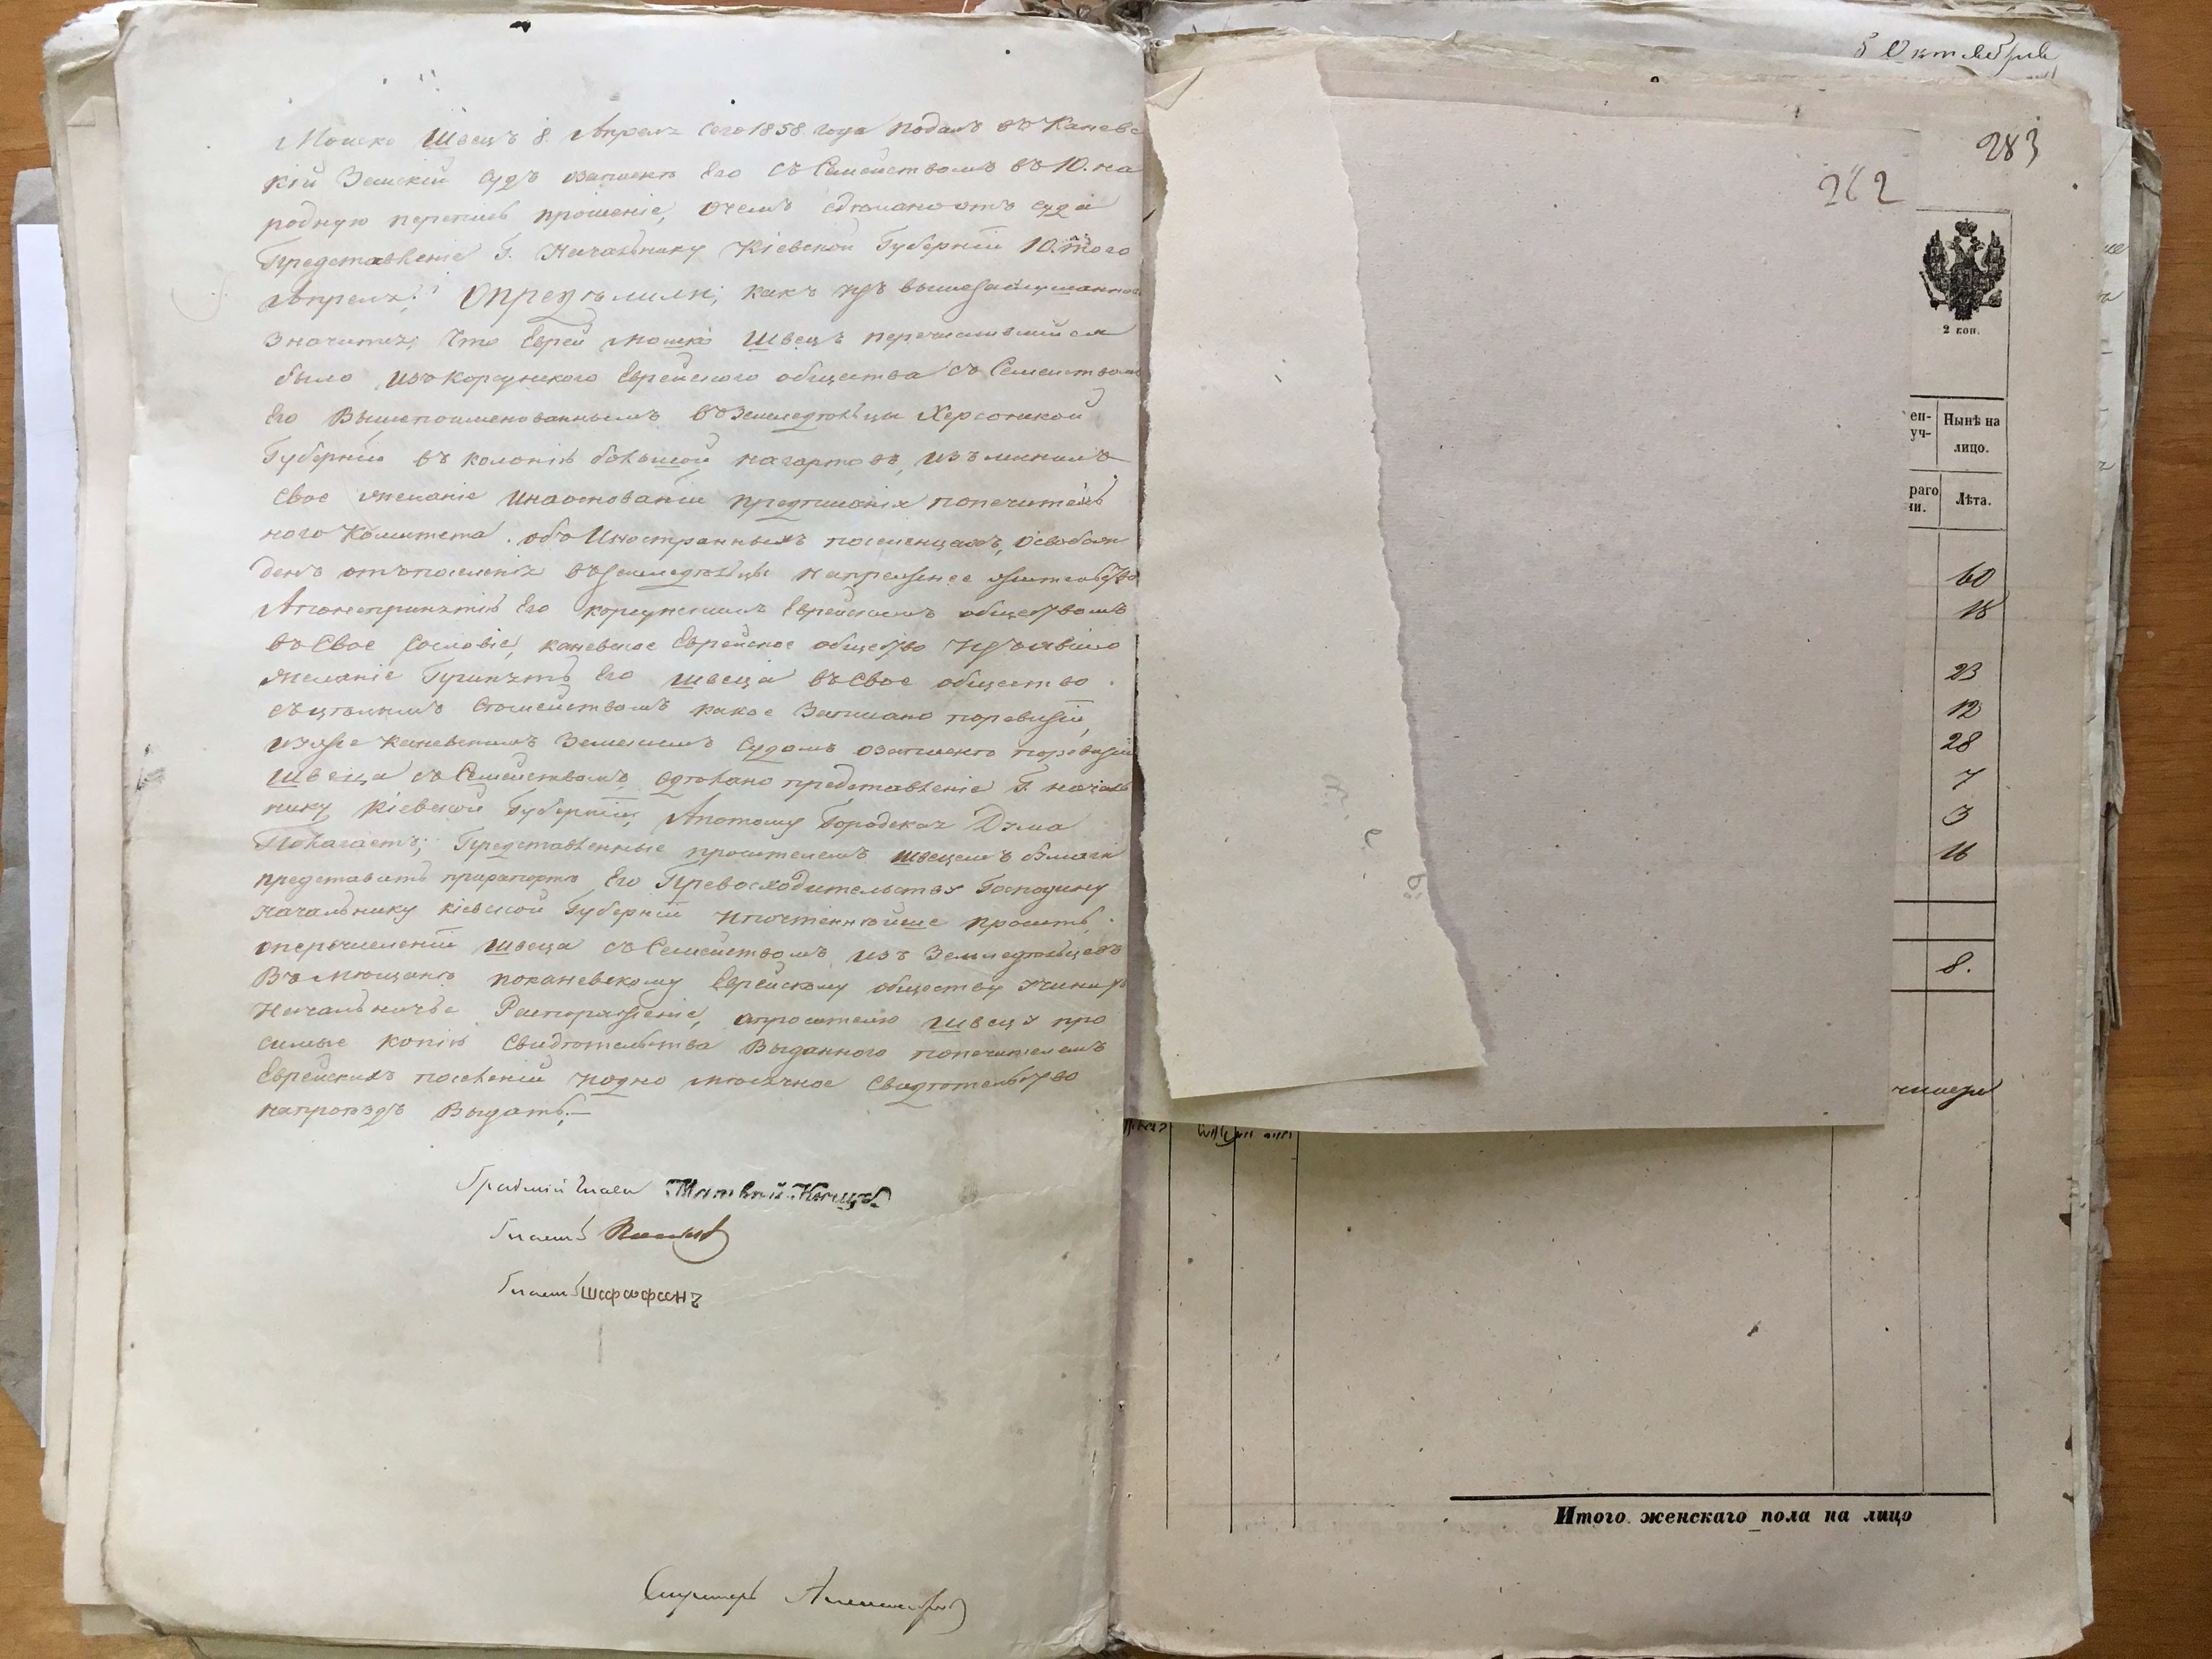 Мошко Швецъ 8. Апреля сего 1858 года подалъ въ Каневс
кій Земскій Судъ озаписке Его съ Семействомъ въ 10. на
родную перепись прошеніе, очемъ сделано отъ суда
Представленіе Г. Начальнику Кіевской Губерніи 10. того
Апреля. Определили; какъ изъ вышезаслушаннаго
Значится, что Еврей Мошко Швецъ перечислившійся
было изъ Корсунскаго Еврейского общества съ Семействомъ
Его Вышепоименованнымъ въ Земледельцы Херсонской
Губерніи въ колонію большой нагартовъ, изъменилъ
Свое желаніе инаоснованіи предписанія попечитель
ного Комитета объ Иностранныхъ поселенцахъ, Освобож
денъ отъ поселенія въ земледельцы на прежнее жительство
Апонепринятію Его корсунскимъ Еврейскимъ обществомъ
въ Свое Сословіе, каневское Еврейское общество изъявило
желаніе Принять Его Швеца въ Свое общество
съ целымъ Семействомъ какое Записано поревизіи,
ужже каневскимъ Земскимъ Судомъ озаписке поревизіи
Швеца съ Семействомъ, сделано представленіе Г. началь
нику Кіевской Губерніи, Апотому Городская Дума
Полагаетъ; Представленные просителемъ Швецемъ бумаги
представить прирапорте Его Превосходительству Господину
Начальнику Кіевской Губерніи ипочтеннейше просить,
оперечисленіи Швеца съ Семействомъ изъ Земледельцевъ
Въ Мещане поканевскому Еврейскому обществу учинить
Начальничье Распоряженіе, апросителю Швецу про
симые копію Свидетельства Выданного попечителемъ
Еврейскихъ поселеній иодно месячное Свидетельство
напроездъ Выдать.—
Градскій Глава Матвей
Гласный
Гласный Шафафанъ
Секретарь
5 Октября
283
282
2 коп.
ен-
уч-
Нынѣ на
лицо.
раго
ни.
Лѣта.
60
18
23
12
28
7
3
16
8.
Итого женскаго пола на лицо